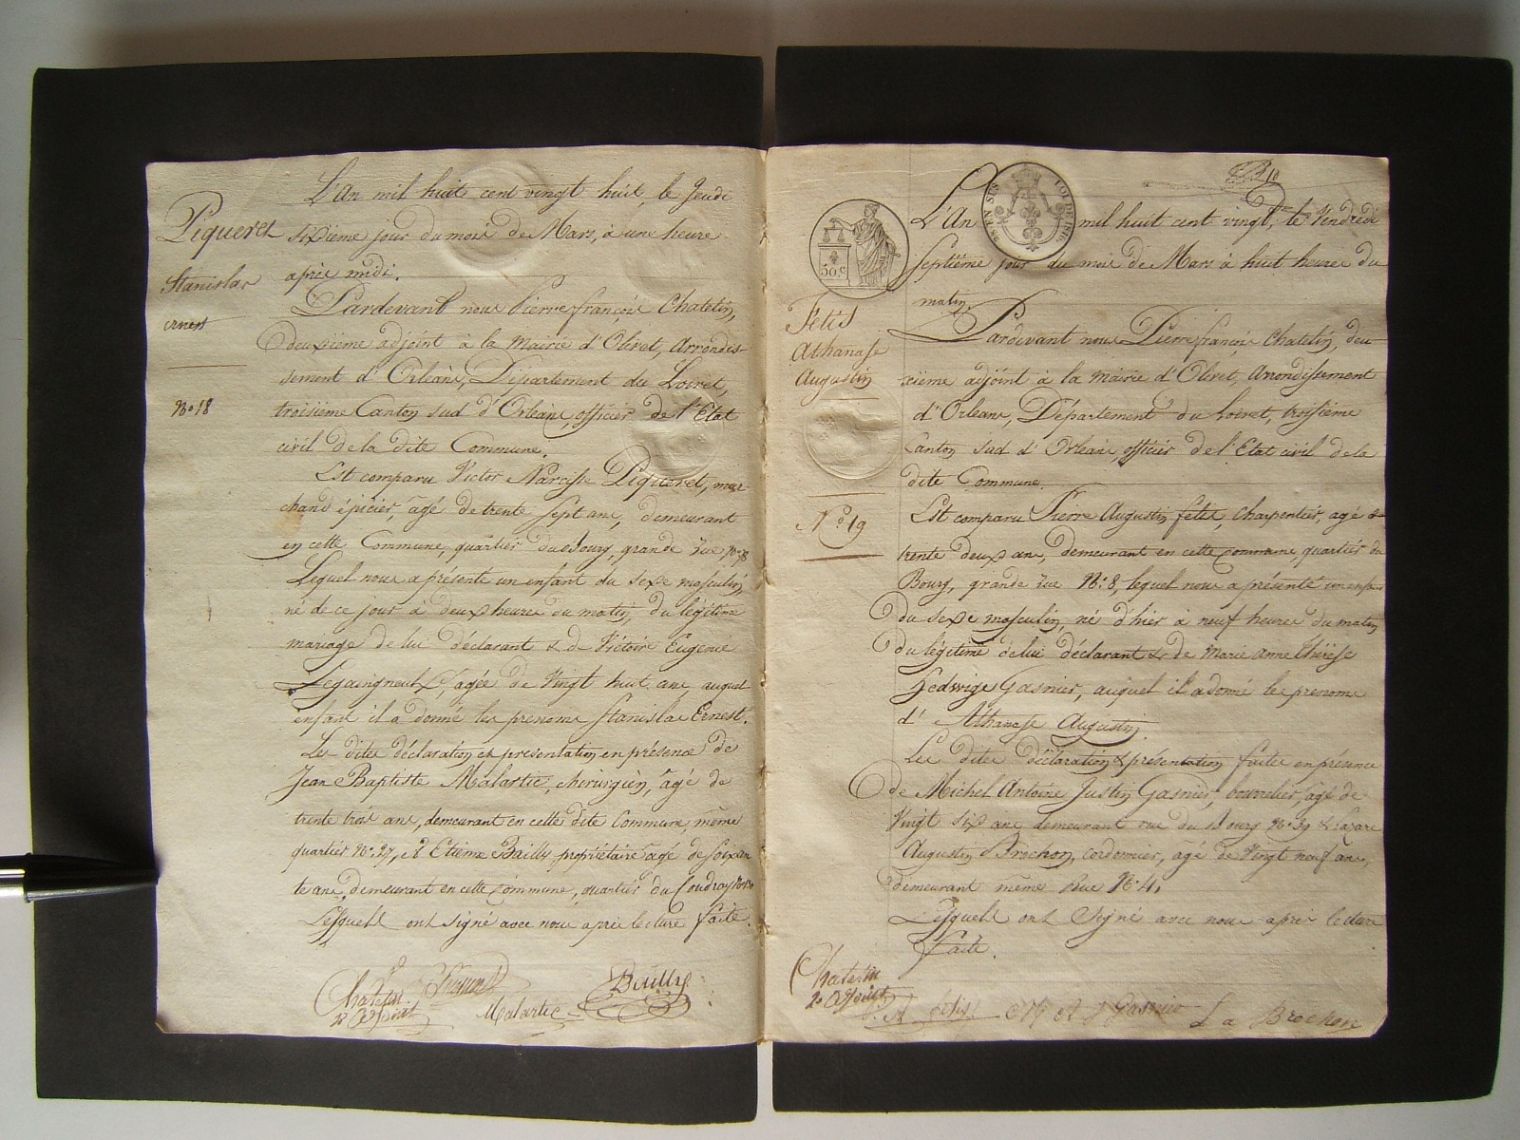 L'An mil huit cent vingt huit, le Jeudi
sixième jour du mois de Mars, à une heure
après midi.
Piqueret
Stanislas
ernest
N° 18
Pardevant nous Pierre françois Chatelin,
deuxième adjoint à la Mairie d'Olivet, Arrondis-
sement d'Orléans, Département du Loiret,
troisième Canton sud d'Orléans, officier de l'Etat
civil de la dite Commune.
Est comparu Victor Narcisse Piqueret, mar-
chand épicier, agé de trente sept ans, demeurant
en cette Commune, quartier du Bourg, grande rue
Lequel nous a présenté un enfant du sexe masculin,
né de ce jour à deux heures du matin, du légitime
mariage de lui déclarant & de Victoire Eugénie
agée de vingt huit ans, auquel
enfant il a donné les prenoms Stanislas Ernest.
Les dites déclaration et presentation en présence de
Jean Baptiste Malartic, chirurgien, agé de
trente trois ans, demeurant en cette dite Commune, même
quartier N° 27, et Etienne Bailly propriétaire agé de soixan
te ans, demeurant en cette commune, quartier du Coudray
Lesquels ont signé avec nous après lecture faite.
Chatelin
2e Adjoint
Piqueret
Malartic
Bailly
50 c
L'An mil huit cent vingt, le Vendredi
Septième jour du mois de Mars à huit heures du
matin.
Fetis
Athanase
Augustin
N° 19
Pardevant nous Pierre françois Chatelin, deu-
xième adjoint à la Mairie d'Olivet, Arrondissement
d'Orléans, Département du Loiret, troisième
Canton sud d'Orléans, officier de l'Etat civil de la
dite Commune.
Est comparu Pierre Augustin fetis, charpentier, agé de
trente deux ans, demeurant en cette commune quartier du
Bourg, grande rue N° 8, lequel nous a présenté un enfant
du sexe masculin, né d'hier à neuf heures du matin
du légitime de lui déclarant & de Marie Anne Thérèse
Hedwige Gasnier, auquel il a donné les prenoms
d'Athanase Augustin.
Les dites déclaration & présentation faites en présence
de Michel Antoine Justin Gasnier, bourrelier, agé de
Vingt six ans demeurant rue du Bourg N° 39 & Lazare
Augustin Brochon, cordonnier, agé de Vingt neuf ans,
demeurant même Rue N° 41.
Lesquels ont signé avec nous après lecture
faite.
Chatelin
2e Adjoint
fetis
M A J Gasnier
L a Brochon